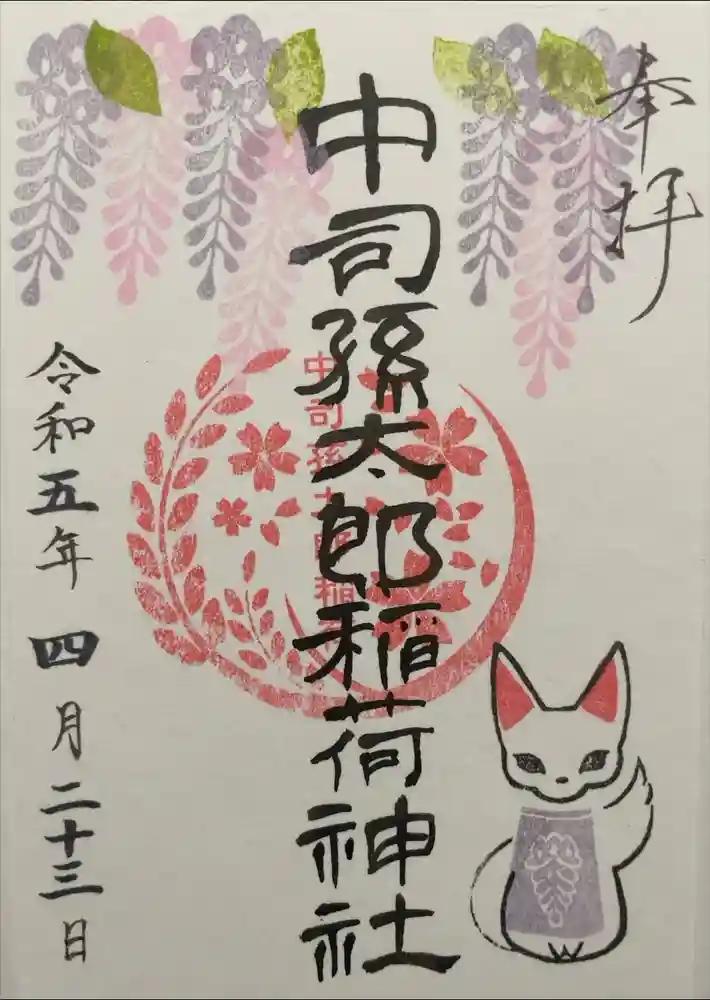 奉拝
中司孫太郎稲荷神社
中司孫太郎稲
令和五年 四月二十三日